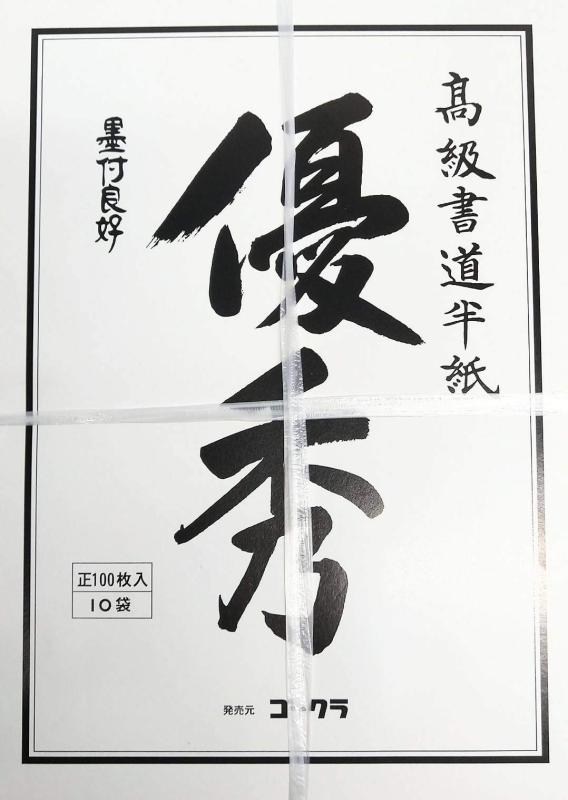 高級書道半紙
優秀
墨付良好
正100枚入
10袋
発売元 コクラ